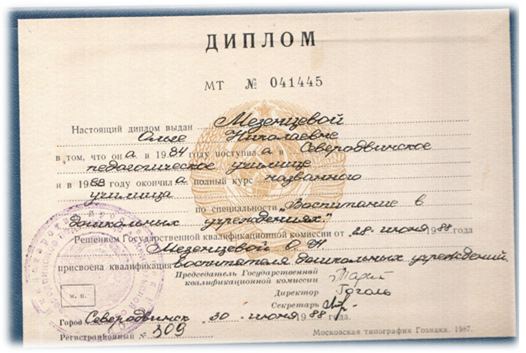 ДИПЛОМ
МТ № 041445
Настоящий диплом выдан Мезенцевой
Ольге Николаевне
в том, что она в 1984 году поступила в Северодвинское
педагогическое училище
и в 1988 году окончила полный курс названного
училища
по специальности „Воспитание в
дошкольных учреждениях"
Решением Государственной квалификационной комиссии от 28 июня 1988 года
Мезенцевой О. Н
присвоена квалификация воспитателя дошкольных учреждений
Председатель Государственной
квалификационной комиссии
Директор Гоголь
Секретарь
м. п.
Город Северодвинск 30 июня 1988 года.
Регистрационный № 309
Московская типография Гознака. 1987.